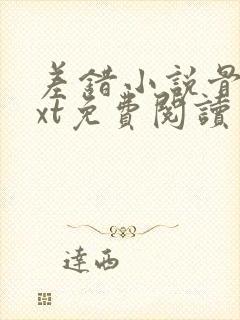 差錯小說最
xt免費閱讀
達西